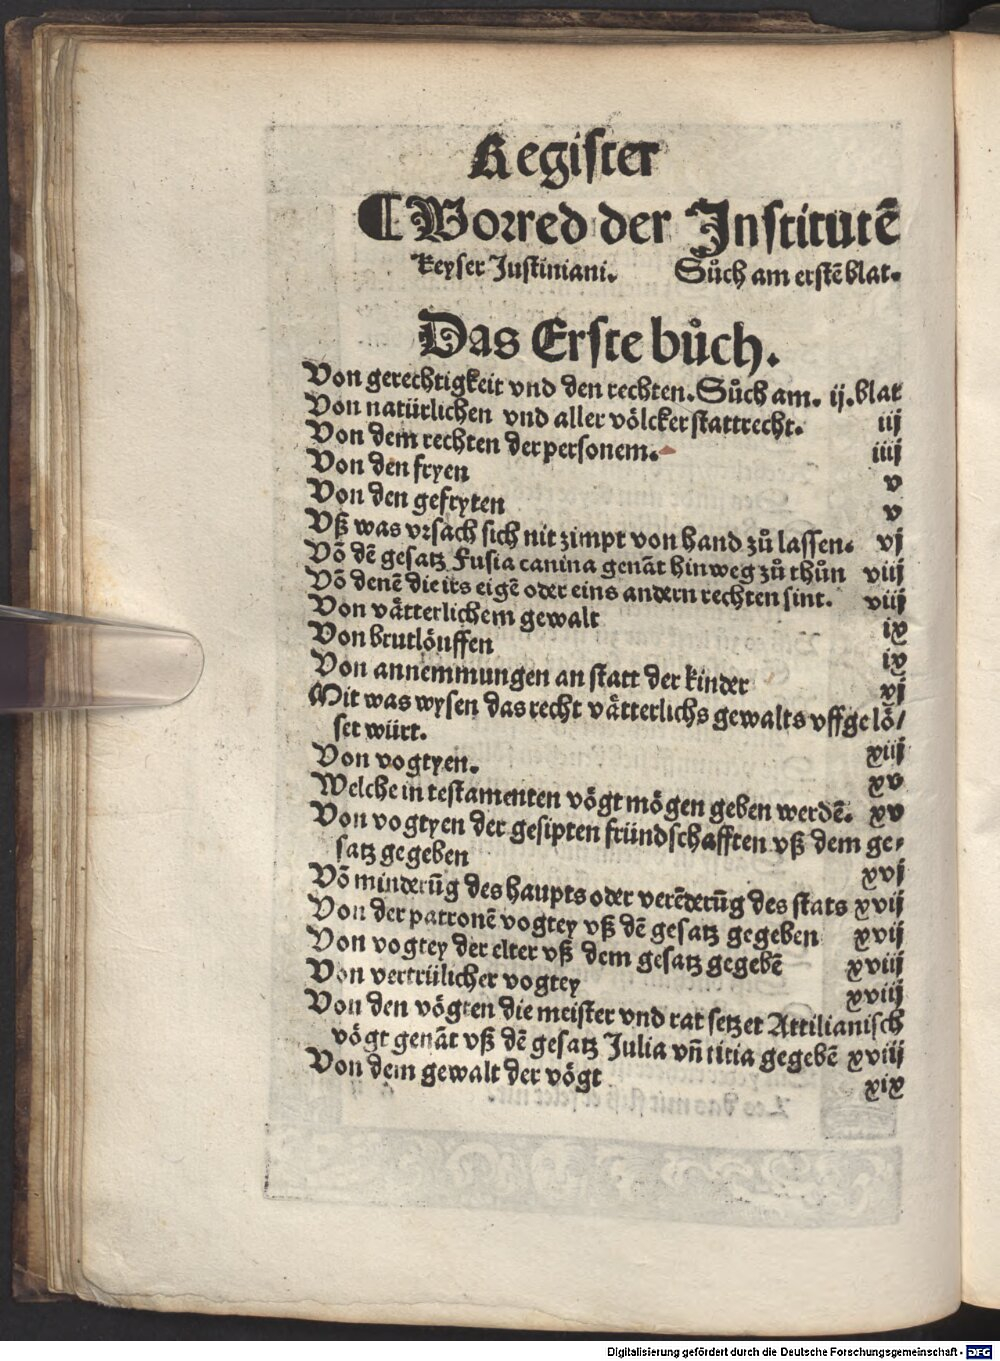 Register
¶ Vorred der Institutē
keyser Justiniani. Sůch am erstē blat.
Das Erste bůch.
Von gerechtigkeit vnd den rechten. Sůch am. ij. blat
Von natürlichen vnd aller völcker stattrecht. iij
Von dem rechten der personem. iiij
Von den fryen v
Von den gefryten v
Vß was vrsach sich nit zimpt von hand zů lassen. vj
Võ dē gesatz Fusia canina genāt hinweg zů thůn viij
Võ denē die irs eigē oder eins andern rechten sint. viij
Von vätterlichem gewalt ix
Von brutlöuffen ix
Von annemmungen an statt der kinder xj
Mit was wysen das recht vätterlichs gewalts vffgelö/
set würt. xiij
Von vogtyen. xv
Welche in testamenten vögt mögen geben werdē. xv
Von vogtyen der gesipten fründschafften vß dem ge/
satz gegeben xvj
Võ minderūg des haupts oder verēderūg des stats xvij
Von der patronē vogtey vß dē gesatz gegeben xvij
Von vogtey der elter vß dem gesatz gegebē xviij
Von vertrülicher vogtey xviij
Von den vögten die meister vnd rat setzet Attilianisch
vögt genāt vß dē gesatz Julia vñ titia gegebē xviij
Von dem gewalt der vögt xix
Digitalisierung gefördert durch die Deutsche Forschungsgemeinschaft - DFG